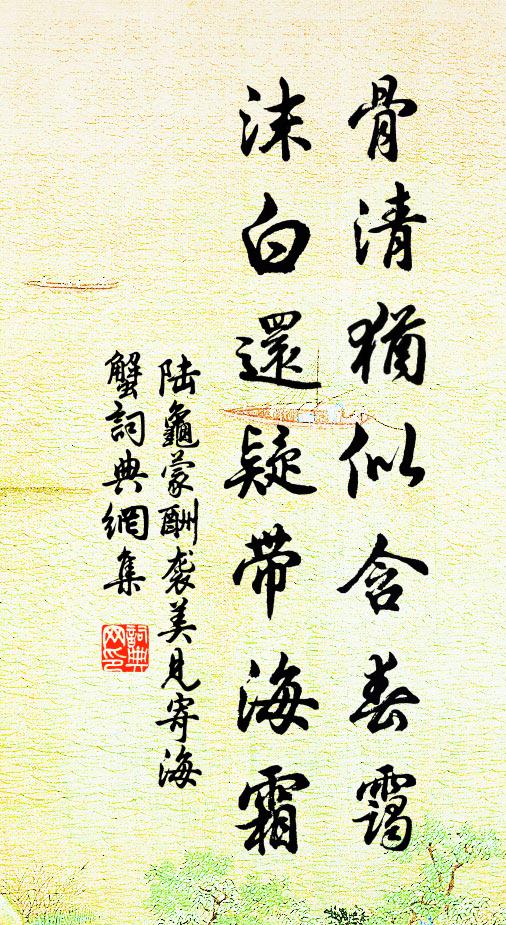 骨清猶似含春靄
沫白還疑帶海霜
陸龜蒙酬袭美見寄海
蟹詞典網集
詞典
网印